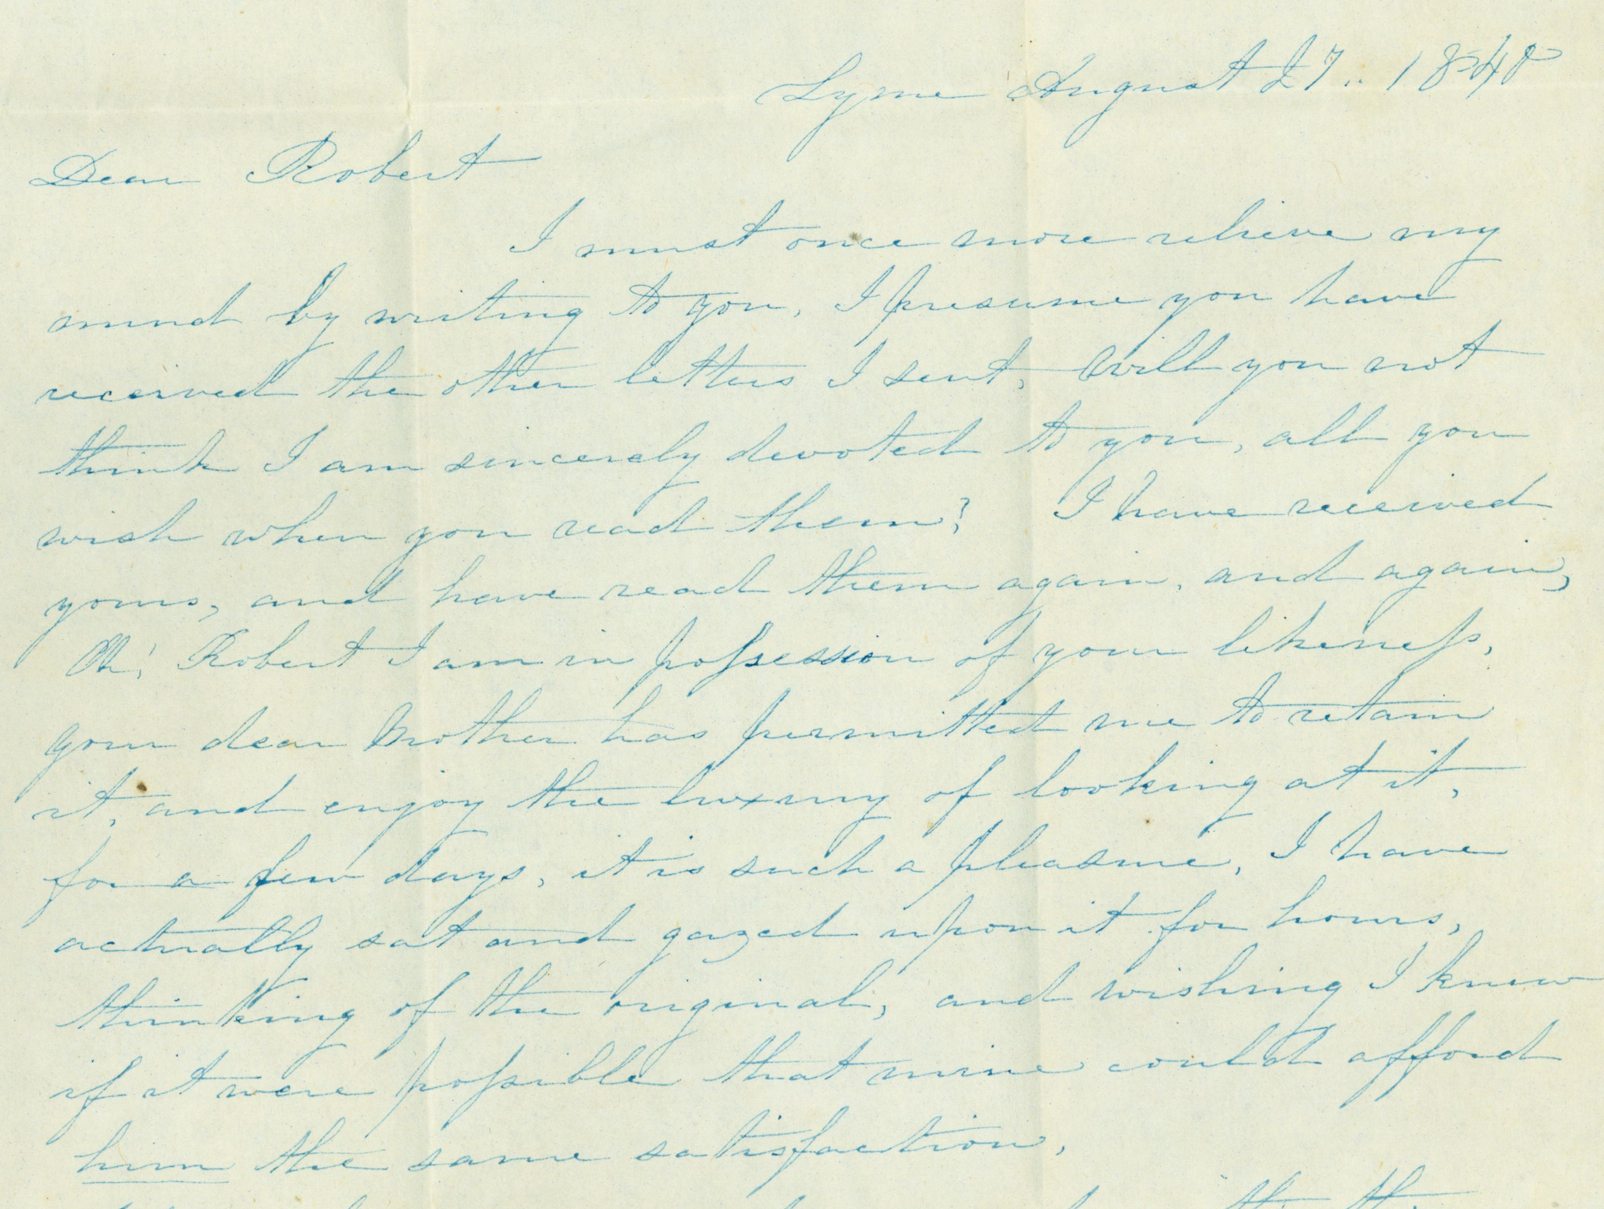 Lyme August 27.. 1848
Dear Robert
I must once more relieve my
mind by writing to you, I presume you have
received the other letters I sent, Will you not
think I am sincerely devoted to you, all you
wish when you read them? I have received
yours, and have read them again, and again,
Oh! Robert I am in poſsession of your likeneſs,
your dear Mother has permitted me to retain
it, and enjoy the luxury of looking at it,
for a few days, it is such a pleasure, I have
actually sat and gazed upon it for hours,
thinking of the original, and wishing I knew
if it were poſsible that mine could afford
him the same satisfaction,